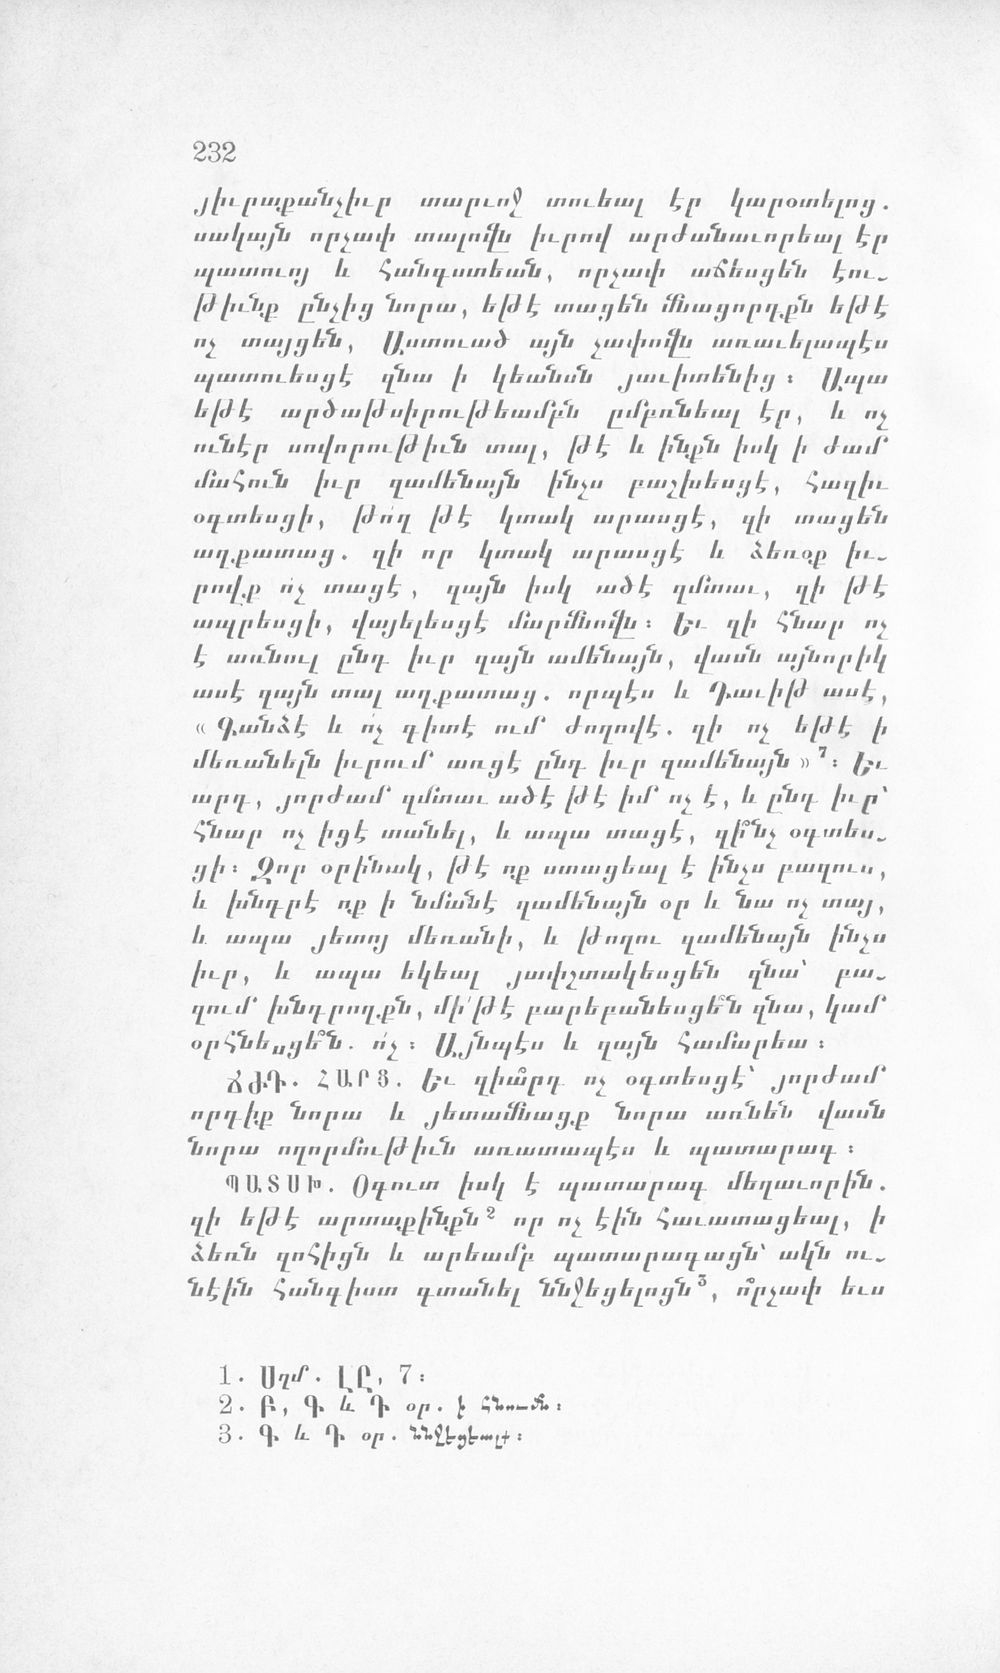 232
յիւրաքանչիւր տարւոջ տուեալ էր կարօտելոց.
սակայն որչափ տալովն իւրով արժանաւորեալ էր
պատուոյ և հանգստեան, որչափ աճեսցեն էու֊
թիւնք ընչից նորա, եթէ տացեն մնացորդքն եթէ
ոչ տայցեն, Աստուած այն չափովն առաւելապէս
պատուեսցէ զնա ի կեանսն յաւիտենից։ Ապա
եթէ արծաթսիրութեամբն ըմբռնեալ էր, և ոչ
ունէր սովորութիւն տալ, թէ և ինքն իսկ ի ժամ
մահուն իւր զամենայն ինչս բաշխեսցէ, հազիւ
օգտեսցի, թո՛ղ թէ կտակ արասցէ, զի տացեն
աղքատաց. զի որ կտակ արասցէ և ձեռօք իւ֊
րովք ո՛չ տացէ, զայն իսկ ածէ զմտաւ, զի թէ
ապրեսցի, վայելեսցէ մարմնովն։ Եւ զի հնար ոչ
է առնուլ ընդ իւր զայն ամենայն, վասն այնորիկ
ասէ զայն տալ աղքատաց. որպէս և Դաւիթ ասէ,
« Գանձէ և ո՛չ գիտէ ում ժողովէ. զի ոչ եթէ ի
մեռանելն իւրում առցէ ընդ իւր զամենայն »¹։ Եւ
արդ, յորժամ զմտաւ ածէ թէ իմ ոչ է, և ընդ իւր՝
հնար ոչ իցէ տանել, և ապա տացէ, զի՞նչ օգտես֊
ցի։ Զոր օրինակ, թէ ոք ստացեալ է ինչս բազուս,
և խնդրէ ոք ի նմանէ զամենայն օր և նա ոչ տայ,
և ապա յետոյ մեռանի, և թողու զամենայն ինչս
իւր, և ապա եկեալ յափշտակեսցեն զնա՝ բա֊
զում խնդրողքն, մի՛թէ բարեբանեսցե՞ն զնա, կամ
օրհնեսցե՞ն. ո՛չ։ Այնպէս և զայն համարեա։
ՃԺԴ. ՀԱՐՑ. Եւ զիա՞րդ ոչ օգտեսցէ՝ յորժամ
որդիք նորա և յետամնացք նորա առնեն վասն
նորա ողորմութիւն առատապէս և պատարագ։
ՊԱՏԱԽ. Օգուտ իսկ է պատարագ մեղաւորին.
զի եթէ արտաքինքն² որ ոչ էին հաւատացեալ, ի
ձեռն զոհիցն և արեամբ պատարագացն՝ ակն ու֊
նէին հանգիստ գտանել ննջեցելոցն³, ո՞րչափ ևս
1. Սղմ. ԼԸ, 7։
2. Բ, Գ և Դ օր. ի հնումն։
3. Գ և Դ օր. ննջեցեալք։